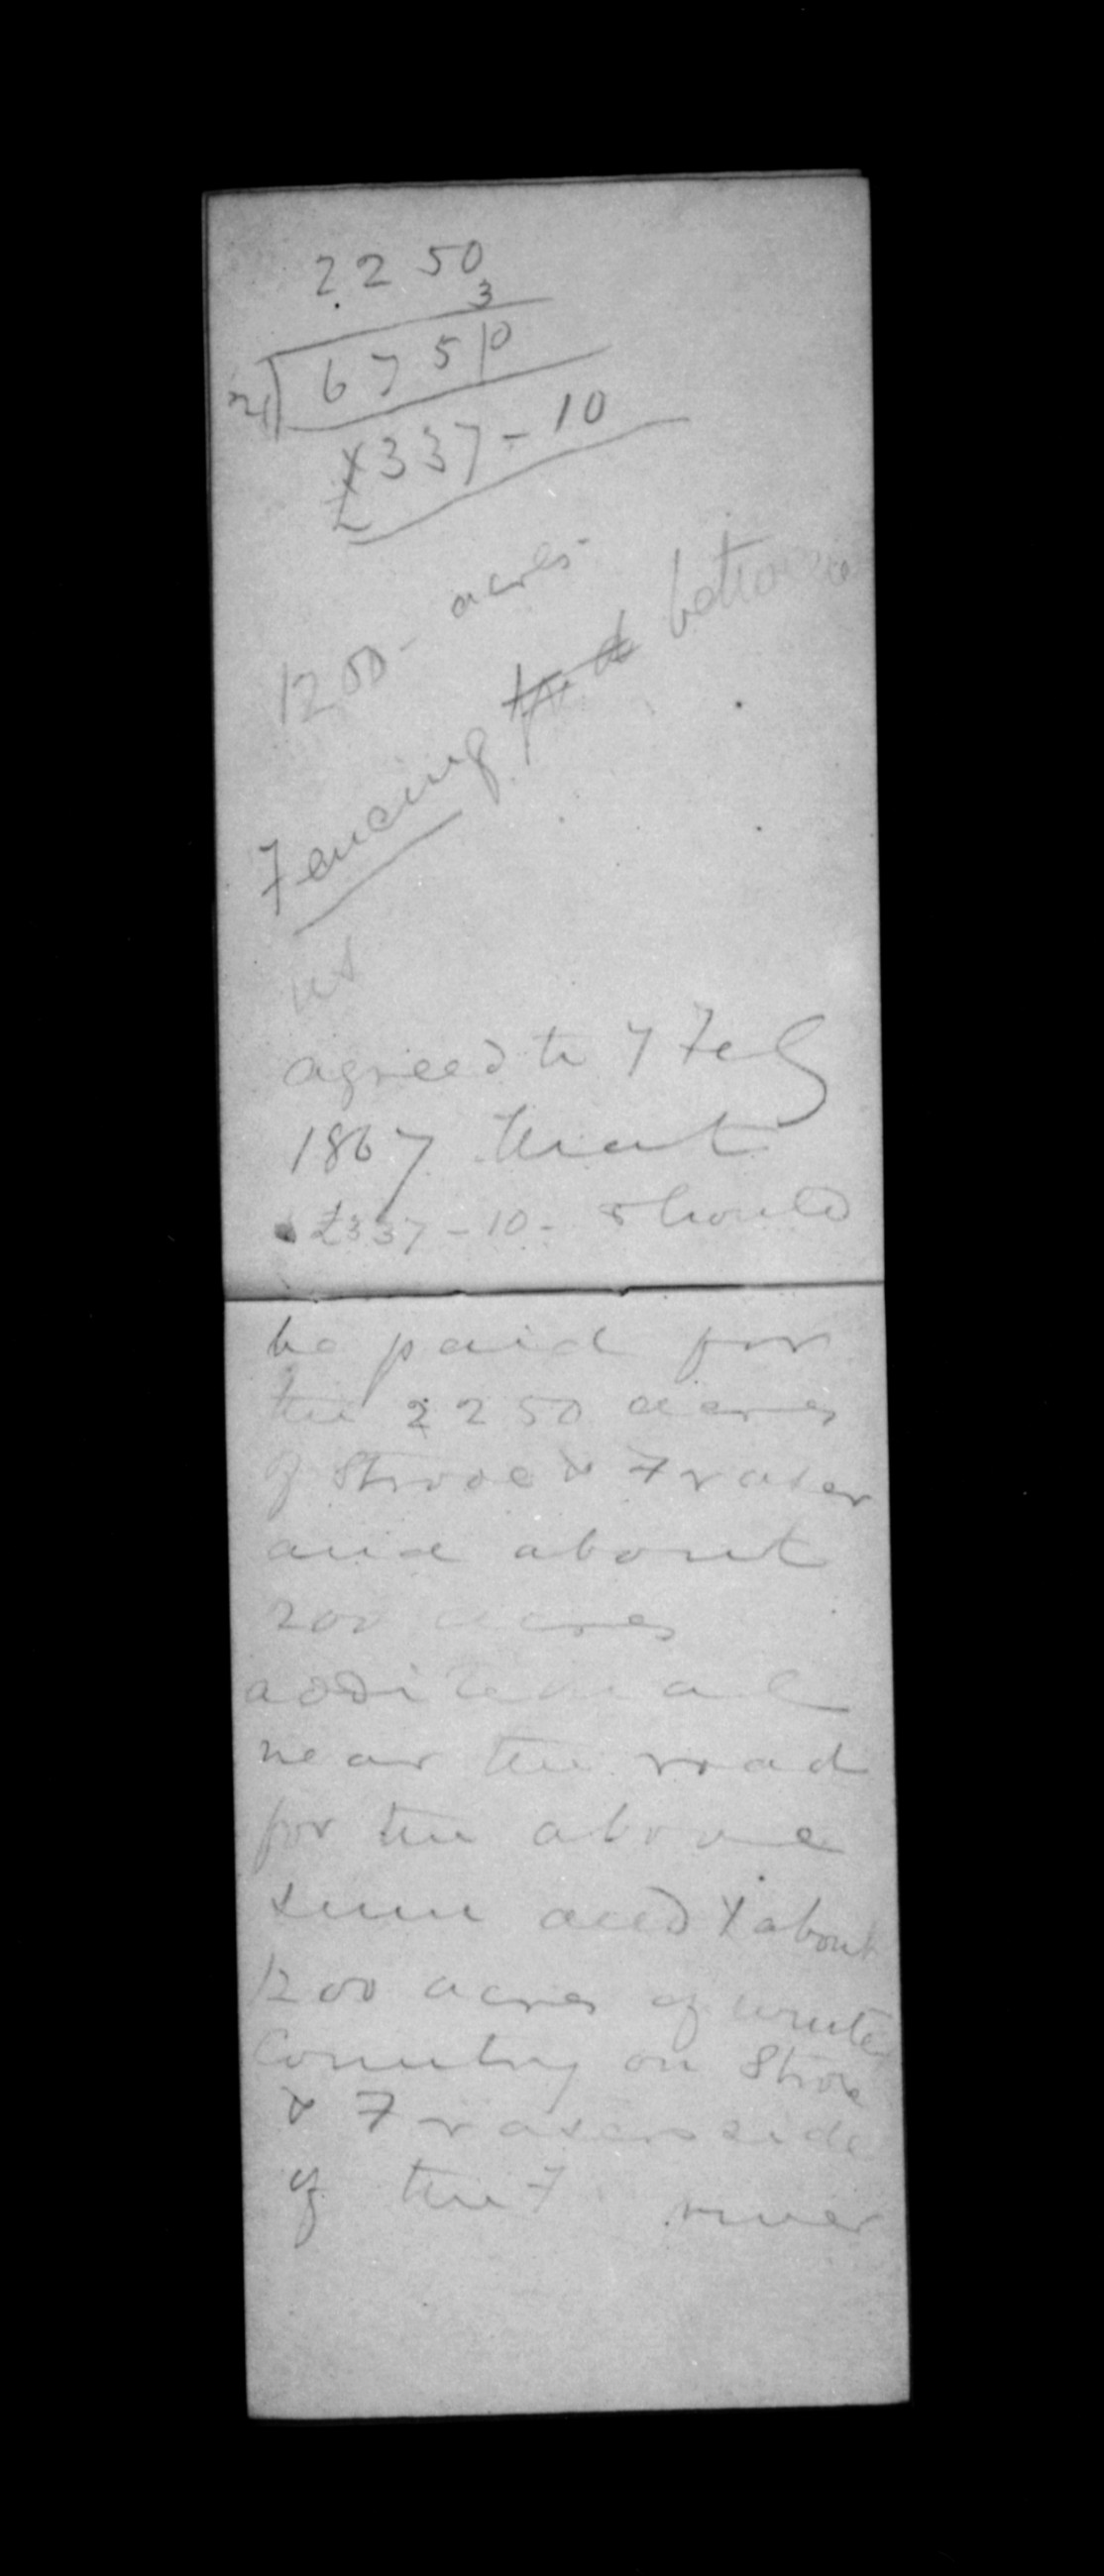 2250
3
2|) 675|0
£337-10
1200 - acres
Fencing
agreed to 7 Feb
1867 that
£337-10- should
be paid for
the 2250 acres
of Strove & Fraser
and about
200 acres
additional
near the road
for the above
sum and about
1200 acres of winter
Country on Strove
& Frasers side
of the river